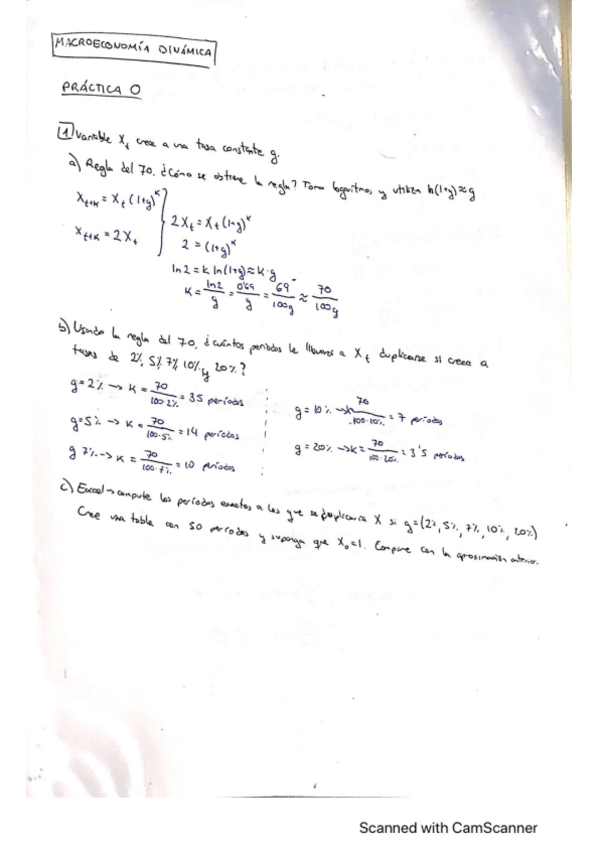 MACROECONOMÍA DINÁMICA
PRÁCTICA 0
1 Variable Xt crece a una tasa constante g.
a) Regla del 70. ¿Cómo se obtiene la regla? Tome logaritmos, y utilizar ln(1+g)≈g
Xt+k = Xt (1+g)^k
Xt+k = 2Xt
2Xt = Xt (1+g)^k
2 = (1+g)^k
ln2 = k ln(1+g) ≈ k·g
k = ln2/g = 0'69/g = 69/100g ≈ 70/100g
b) Usando la regla del 70, ¿cuántos períodos le llevará a Xt duplicarse si crece a
tasas de 2%, 5%, 7%, 10%, y 20%?
g=2% → k = 70/100·2% = 35 períodos
g=5% → k = 70/100·5% = 14 períodos
g 7% → k = 70/100·7% = 10 períodos
g=10% → k 70/100·10% = 7 períodos
g=20% → k = 70/100·20% = 3'5 períodos
c) Excel → compute los períodos exactos a los que se duplicaría X si g=(2%, 5%, 7%, 10%, 20%)
Cree una tabla con 50 períodos y suponga que X0=1. Compare con la aproximación anterior.
Scanned with CamScanner